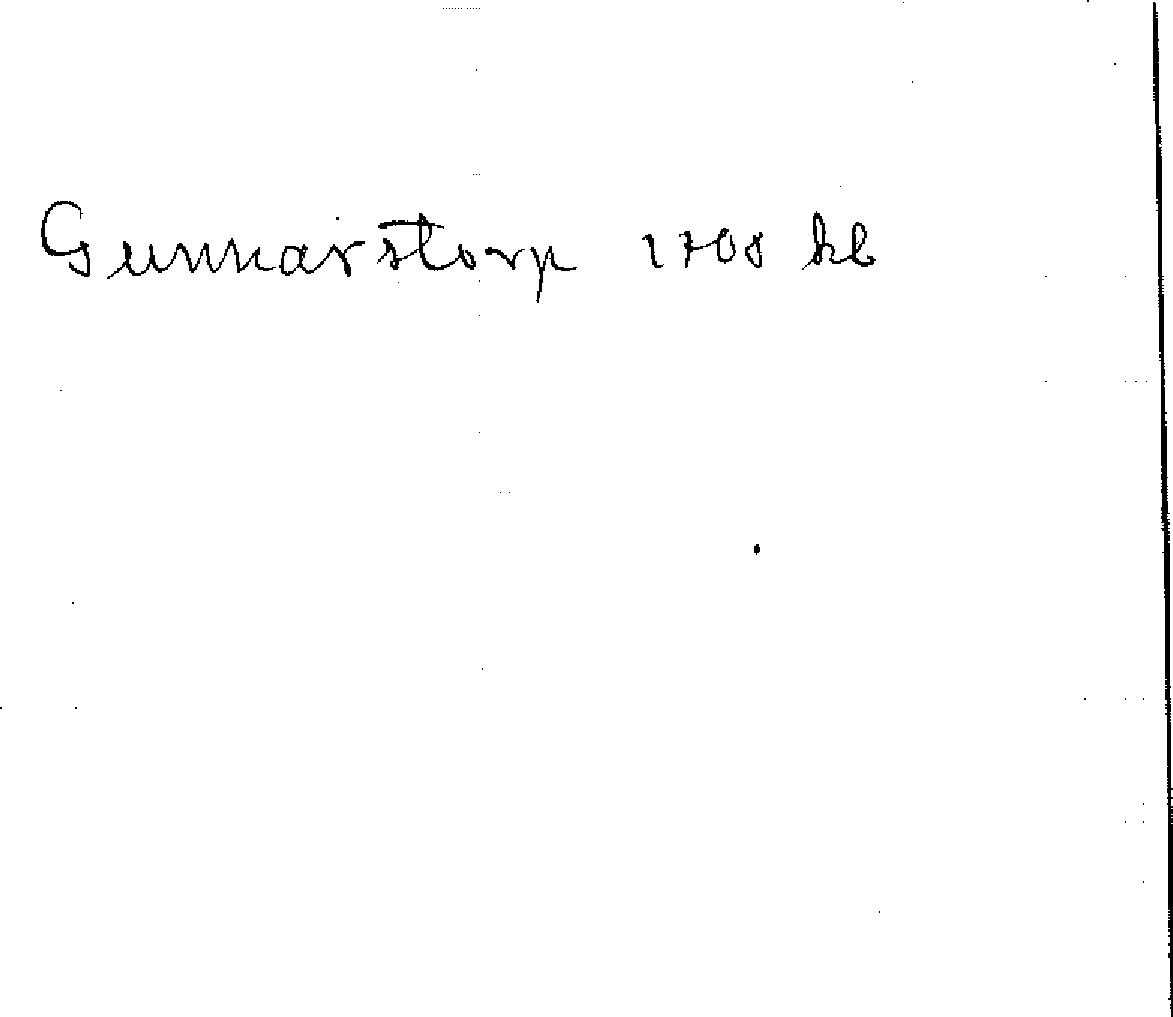 Gunnarstorp 1708 kb